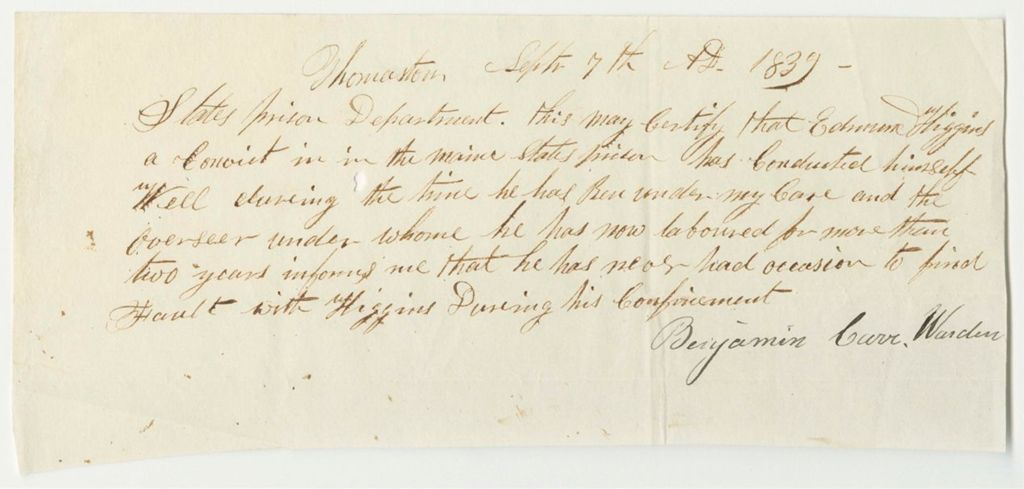 Thomaston Septr 7th AD. 1839 -
States prison Department. this may Certify that Edmund Higgins
a Convict in in the maine States prison has Conducted himself
Well dureing the time he has Ben under my Care and the
overseer under whome he has now laboured for more than
two years informs me that he has never had occasion to find
Fault with Higgins During his Confinement
Benjamin Carr. Warden